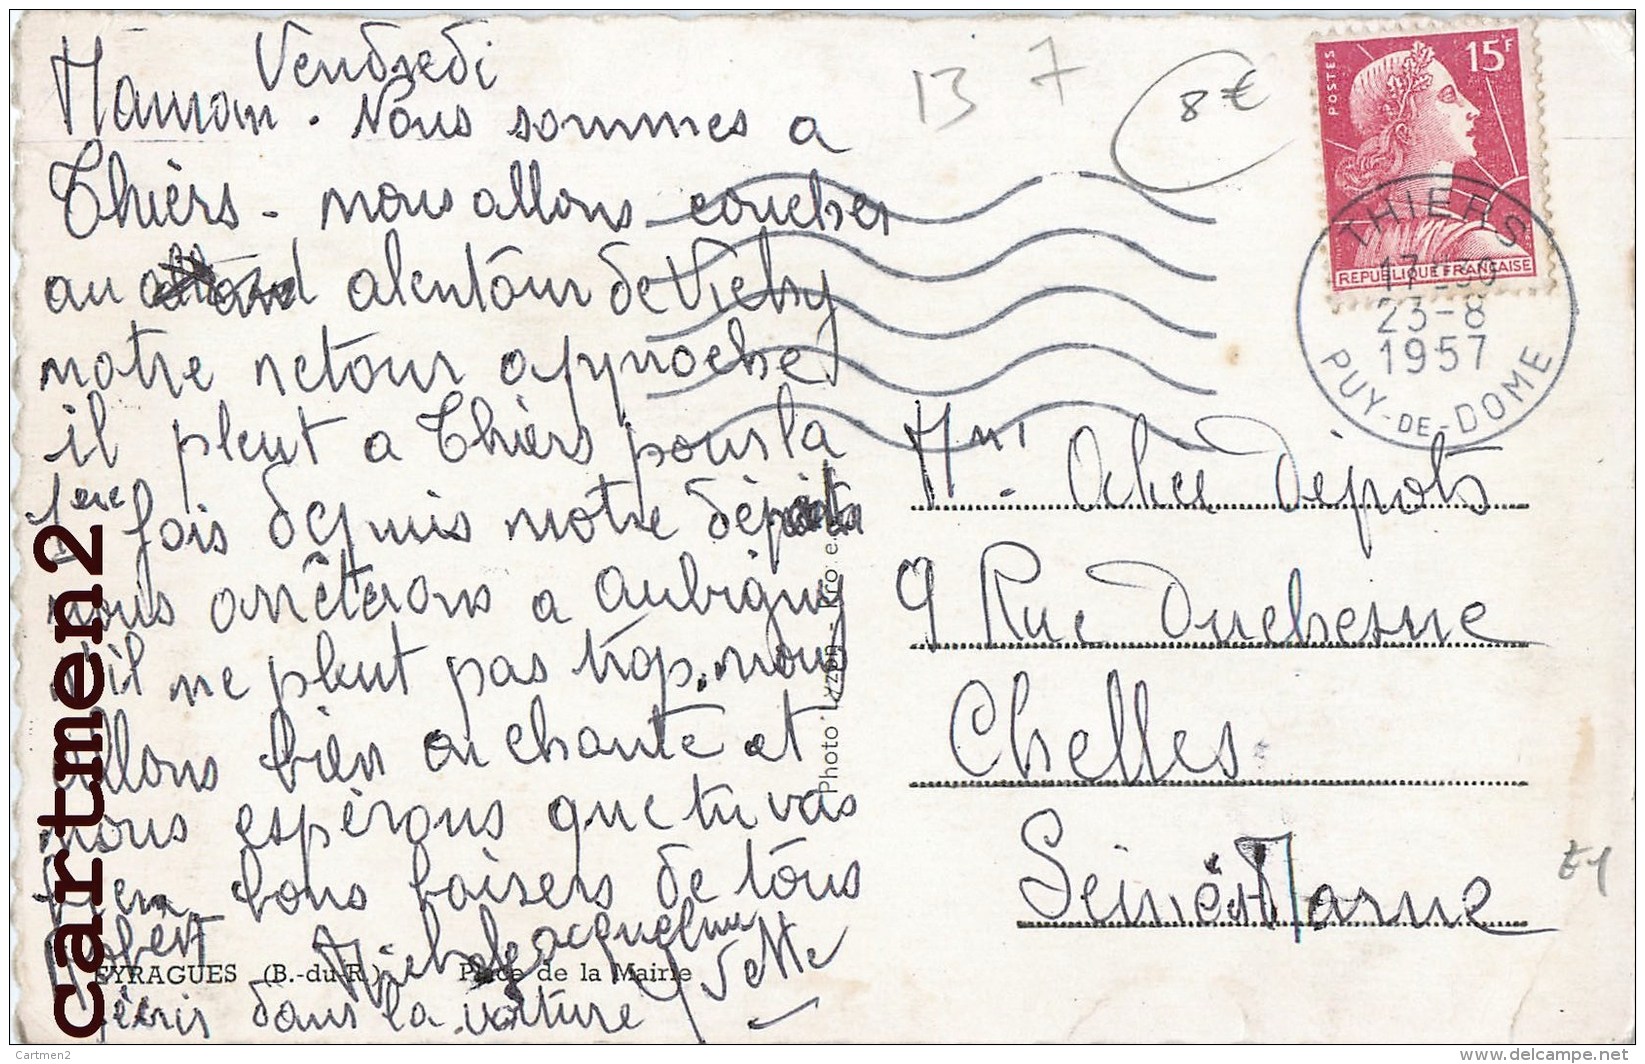 Vendredi
Maman. Nous sommes a
Thièrs - nous allons coucher
au alentour de Vichy
notre retour approche
il pleut a Thièrs pour la
1ere fois depuis notre départ
nous arrêterons a Aubigny
s'il ne pleut pas trop. nous
allons bien on chante et
nous espérons que tu vas
bien bons baisers de tous
Robert Michele Jacqueline Yvette
j'écris dans la voiture
EYRAGUES (B.-du-R.) Place de la Mairie
13 7
8€
POSTES
15F
REPUBLIQUE FRANÇAISE
THIERS
17-30
23-8
1957
PUY-DE-DOME
Alice Dépots
9 Rue Duchesne
Chelles
Seine et Marne
cartmen2
Cartmen2
www.delcampe.net